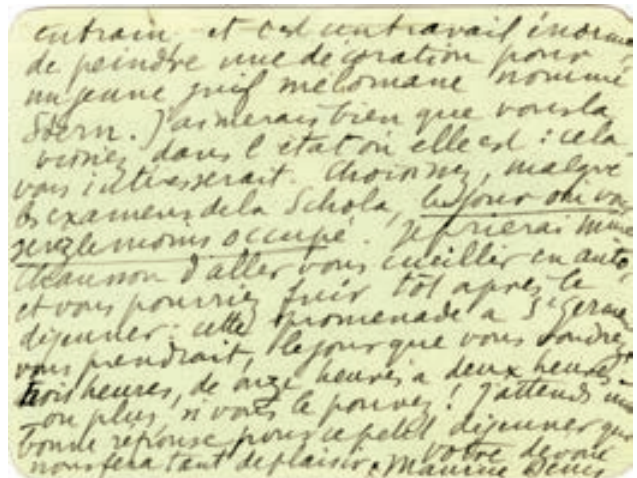 entrain et c'est un travail énorme
de peindre une décoration pour
un jeune juif mélomane nommé
Stern. J'aimerais bien que vous la
voviez dans l'état où elle est : cela
vous intéresserait. Choisissez, malgré
les examens de la Schola, le jour où vous
serez le moins occupé. Je prierai Mme
Chausson d'aller vous cueillir en auto,
et vous pourriez fuir tôt après le
déjeuner : cette promenade à St Germain
vous prendrait, le jour que vous voudrez,
trois heures, de onze heures à deux heures -
ou plus si vous le pouvez ! J'attends une
bonne réponse pour ce petit déjeuner qui
nous fera tant de plaisir. votre dévoué
Maurice Denis